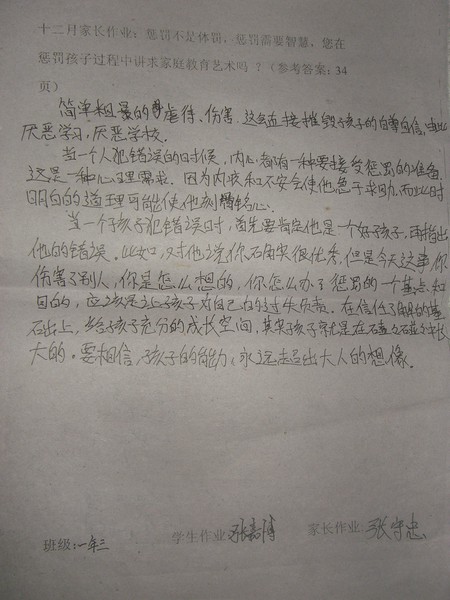 十二月家长作业：惩罚不是体罚，惩罚需要智慧，您在
惩罚孩子过程中讲求家庭教育艺术吗？（参考答案：34
页）
简单粗暴的虐待、伤害，这会直接摧毁孩子的自尊自信，由此
厌恶学习，厌恶学校。
当一个人犯错误的时候，内心都有一种要接受惩罚的准备
这是一种心理需求。因为内疚和不安会使他急于求助，而此时
明白的道理可能使他刻骨铭心。
当一个孩子犯错误时，首先要肯定他是个好孩子，再指出
他的错误。比如，对他说你确实很优秀，但是今天这事，你
伤害了别人，你是怎么想的，你怎么办？惩罚的一个基点和
目的，应该是让孩子对自己的过失负责。在信任了解的基
石出上，给孩子充分的成长空间，其实孩子就是在磕磕碰碰中长
大的。要相信，孩子的能力，永远超出大人的想像。
班级：一年三 学生作业 张嘉博 家长作业 张守忠